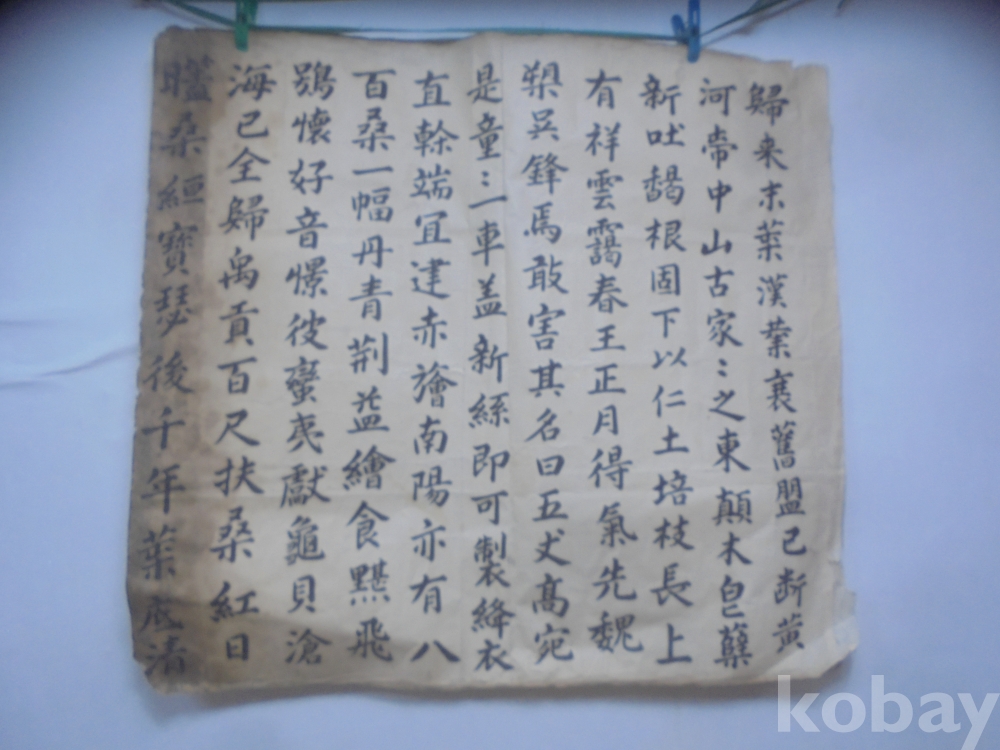 歸来末葉漢業衰舊盟已断黄
河帶中山古家〻之東顛木皀蘖
新吐馤根固下以仁土培枝長上
有祥雲靄春王正月得氣先魏
槊吳鋒焉敢害其名曰五丈髙宛
是童〻一車盖新絲即可製絳衣
直榦端冝建赤旝南陽亦有八
百桑一幅丹青荆益繪食黮飛
鴞懷好音憬彼蠻夷獻龜貝滄
海已全歸禹貢百尺扶桑紅日
桑經寶瑟後千年葉底清
kobay